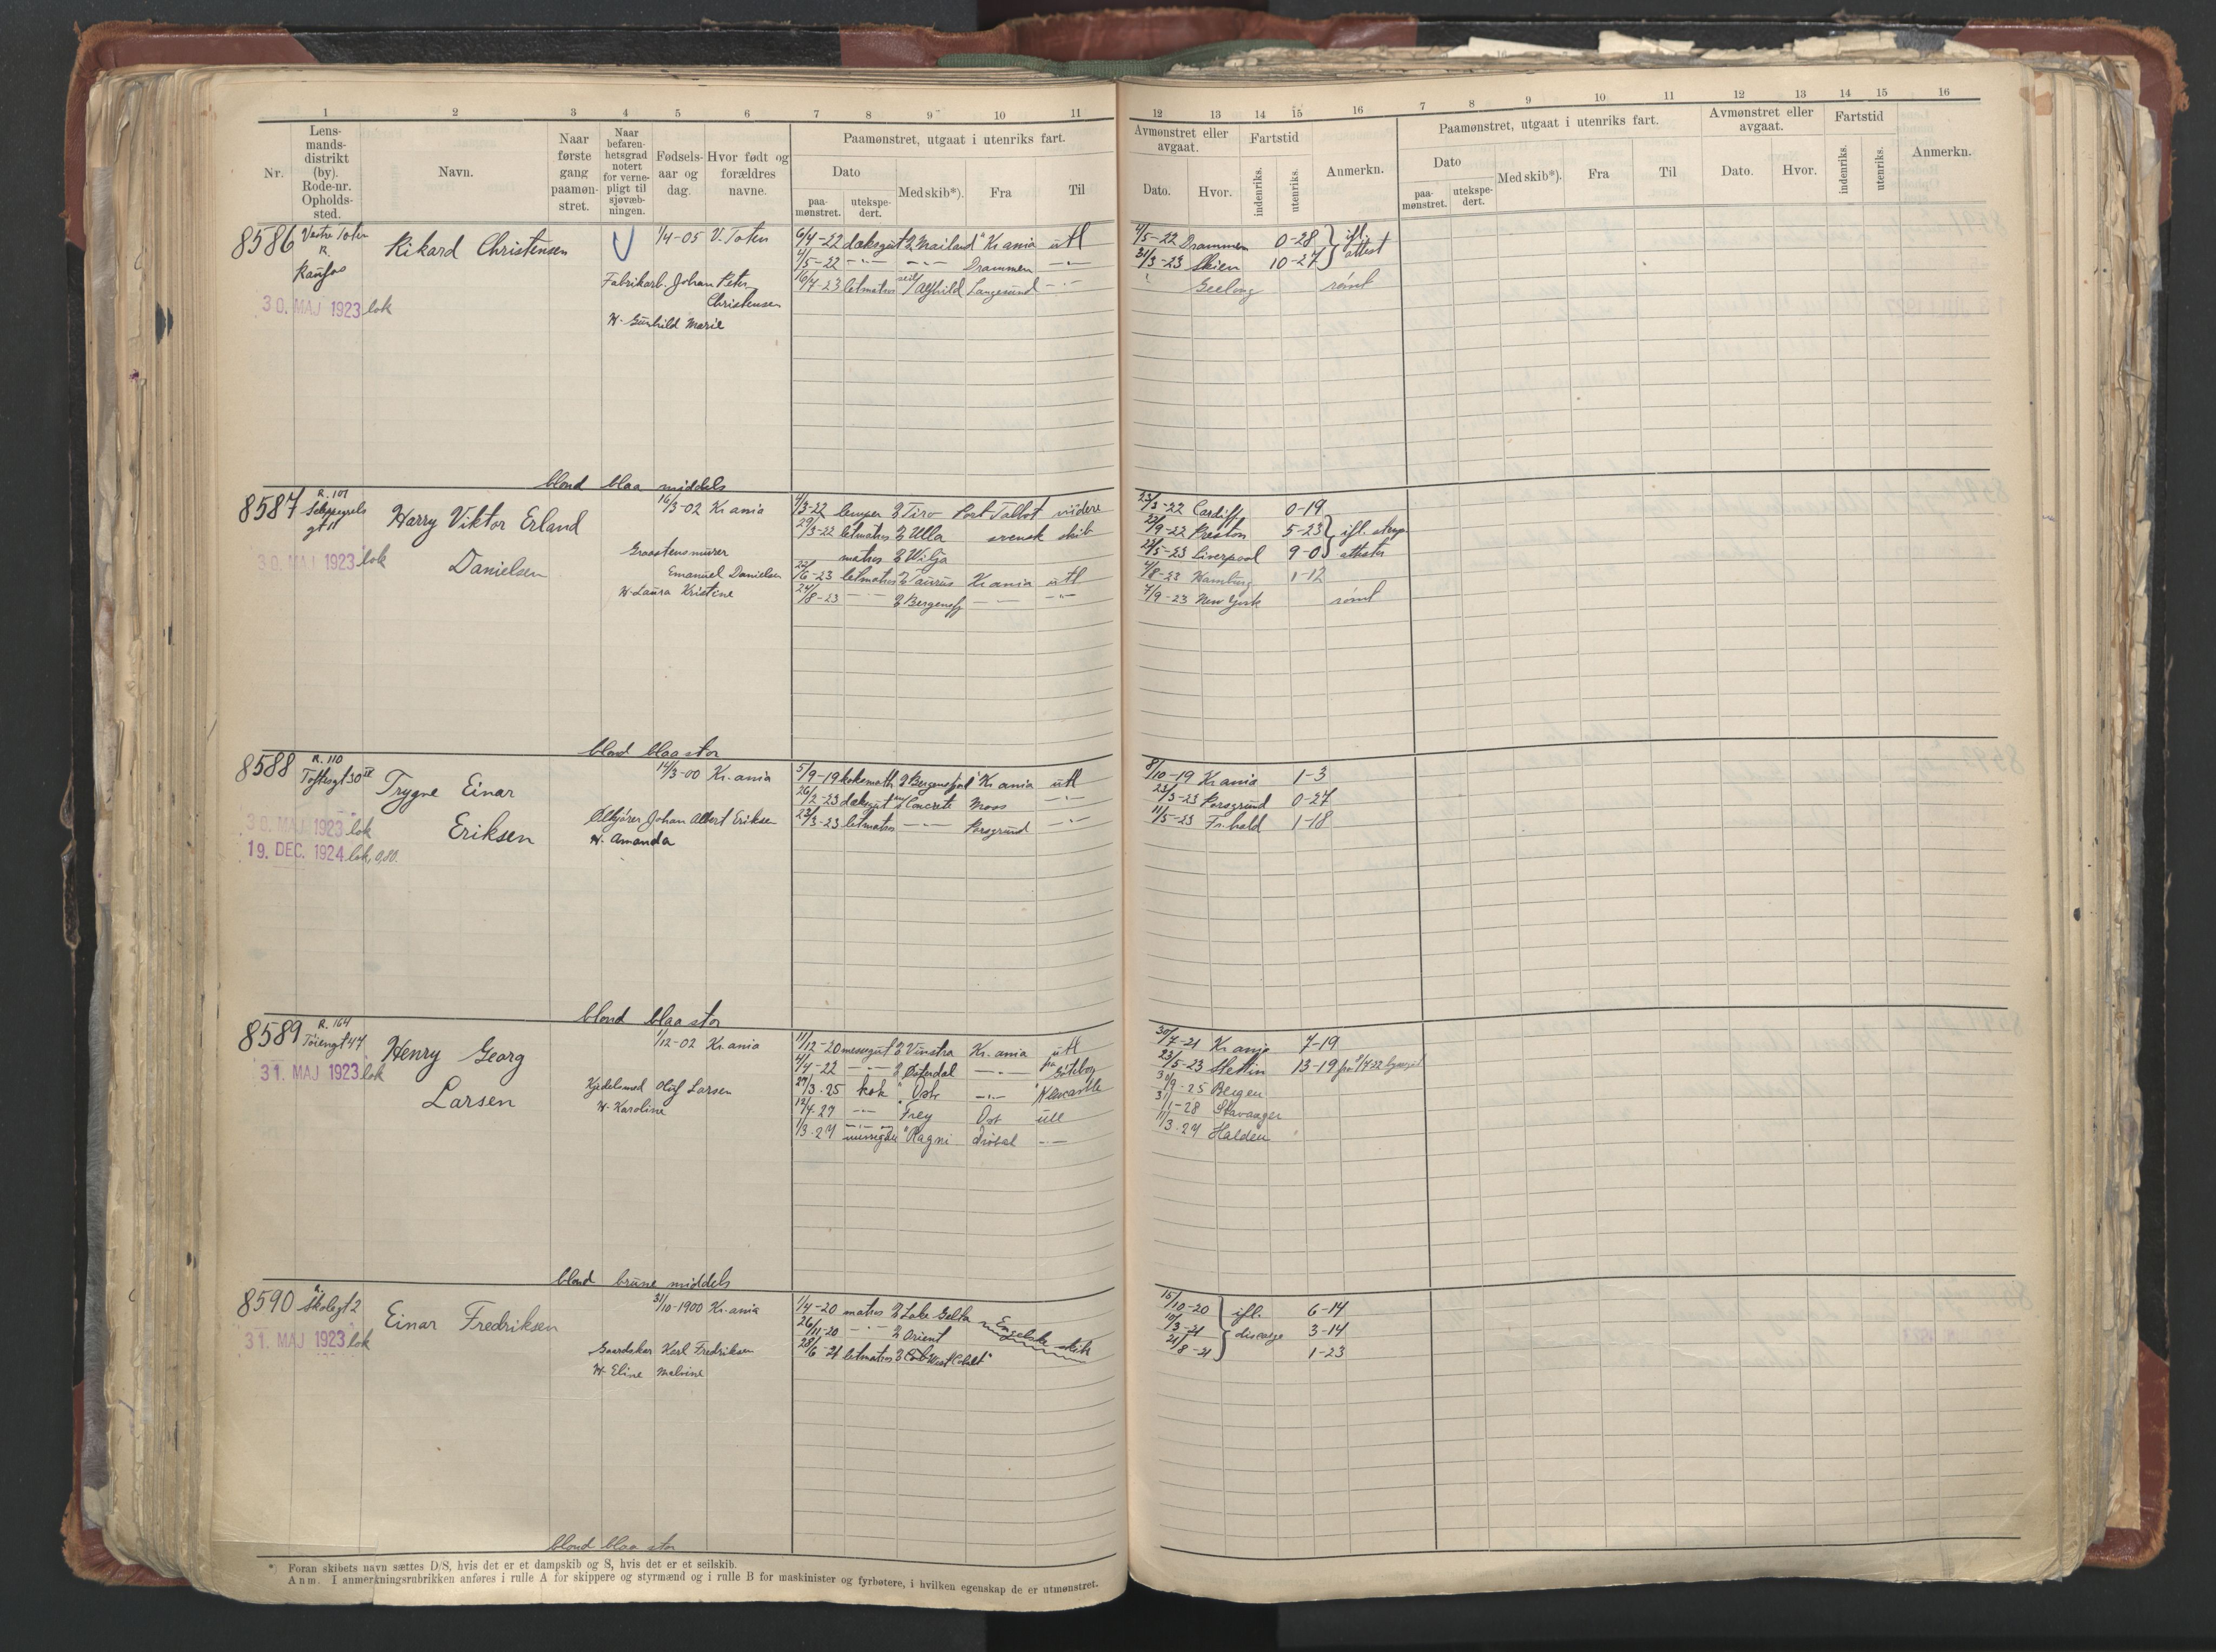 1 2 3 4 5 6 7 8 9 10 11
Nr.
Lens-
mands-
distrikt
(by).
Rode-nr.
Opholds-
sted.
Navn.
Naar
første
gang
paamøn-
stret.
Naar
befaren-
hetsgrad
notert
for verne-
pligt til
sjøvæb-
ningen.
Fødsels-
aar og
dag.
Hvor født og
forældres
navne.
Paamønstret, utgaat i utenriks fart.
Dato
paa-
mønstret.
utekspe-
dert.
Med skib*).
Fra
Til
12 13 14 15 16 7 8 9 10 11 12 13 14 15 16
Avmønstret eller
avgaat.
Dato.
Hvor.
Fartstid
indenriks.
utenriks.
Anmerkn.
Paamønstret, utgaat i utenriks fart.
Dato
paa-
mønstret.
utekspe-
dert.
Med skib*).
Fra
Til
Avmønstret eller
avgaat.
Dato.
Hvor.
Fartstid
indenriks.
utenriks.
Anmerkn.
8586 Vestre Toten
R.
Raufos
30. MAJ 1923 lok
Rikard Christensen
1/4-05 V. Toten
Fabrikarb. Johan Peter
Christensen
H. Gunhild Marie
6/4-22 dæksgut "Mailand" Kr.ania utl
4/5-22 -"- -"- Drammen -"-
16/4-23 letmatros seil/ Alfhild Langesund -"-
4/5-22 Drammen 0-28 ifl.
31/3-23 Skien 10-27 attest
" Geelong rømt
blond blaa middels
8587 R. 101
gt 11
30. MAJ 1923 lok
Harry Viktor Erland
Danielsen
16/3-02 Kr.ania
Graastensmurer
Emanuel Danielsen
H. Laura Kristine
4/3-22 lemper Tiro Port Talbot videre
29/3-22 letmatros Ulla svensk skib
matros Wilja
22/6-23 letmatros Taurus Kr.ania utl
24/8-23 -"- Bergensfj -"- -"-
23/3-22 Cardiff 0-19
22/9-22 Preston 5-23 ifl.
22/5-23 Liverpool 9-0 attester
4/8-23 Hamburg 1-12
7/9-23 New York rømt
blond blaa stor
8588 R. 110
Toftesgt 30 II
30. MAJ 1923 lok
19. DEC. 1924 lok, 0,80.
Trygve Einar
Eriksen
14/3-00 Kr.ania
Ølkjører Johan Albert Eriksen
H. Amanda
5/9-19 koksmath "Bergensfjord" Kr.ania utl
26/2-23 dæksgut m/ Concrete Moss -"-
23/3-23 letmatros -"- Porsgrund -"-
8/10-19 Kr.ania 1-3
23/3-23 Porsgrund 0-27
11/5-23 Fr.hald 1-18
blond blaa stor
8589 R. 164
Tøiengt 47
31. MAJ 1923 lok
Henry Georg
Larsen
1/12-02 Kr.ania
Kjedelsmed Oluf Larsen
H. Karoline
11/12-20 messegut Vinstra Kr.ania utl
4/4-22 -"- Østerdal -"- fra Gøteborg
27/3-25 kok -"- Newcastle
12/4-27 -"- Frey
1/3-27 "Ragni -"-
30/7-21 Kr.ania 7-19
23/5-23 Stettin 13-19
30/9-25 Bergen
31/1-28 Stavanger
11/3-27 Halden
blond brune middels
8590 R.
Skolegt 2
31. MAJ 1923 lok
Einar Fredriksen
31/10-1900 Kr.ania
Gaardskar Karl Fredriksen
H. Eline Malvine
1/4-20 matros Lake Engelske skib
26/11-20 -"- Orient
28/6-21 letmatros West
15/10-20 ifl. 6-14
10/3-21 discarge 3-14
21/8-21 1-23
blond blaa stor
*) Foran skibets navn sættes D/S, hvis det er et dampskib og S, hvis det er et seilskib.
Anm. I anmerkningsrubrikken anføres i rulle A for skippere og styrmænd og i rulle B for maskinister og fyrbøtere, i hvilken egenskap de er utmønstret.